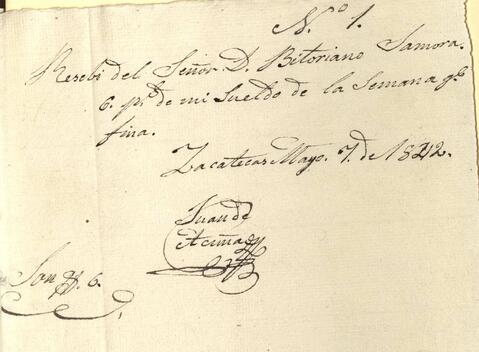 N.º 1.
Resebi del Señor D. Bitoriano Samora.
6. p.s de mi Sueldo de la Semana q.e
fina.
Zacatecas Mayo. 7. de 1842.
Juan de
Acuña
Son 6.